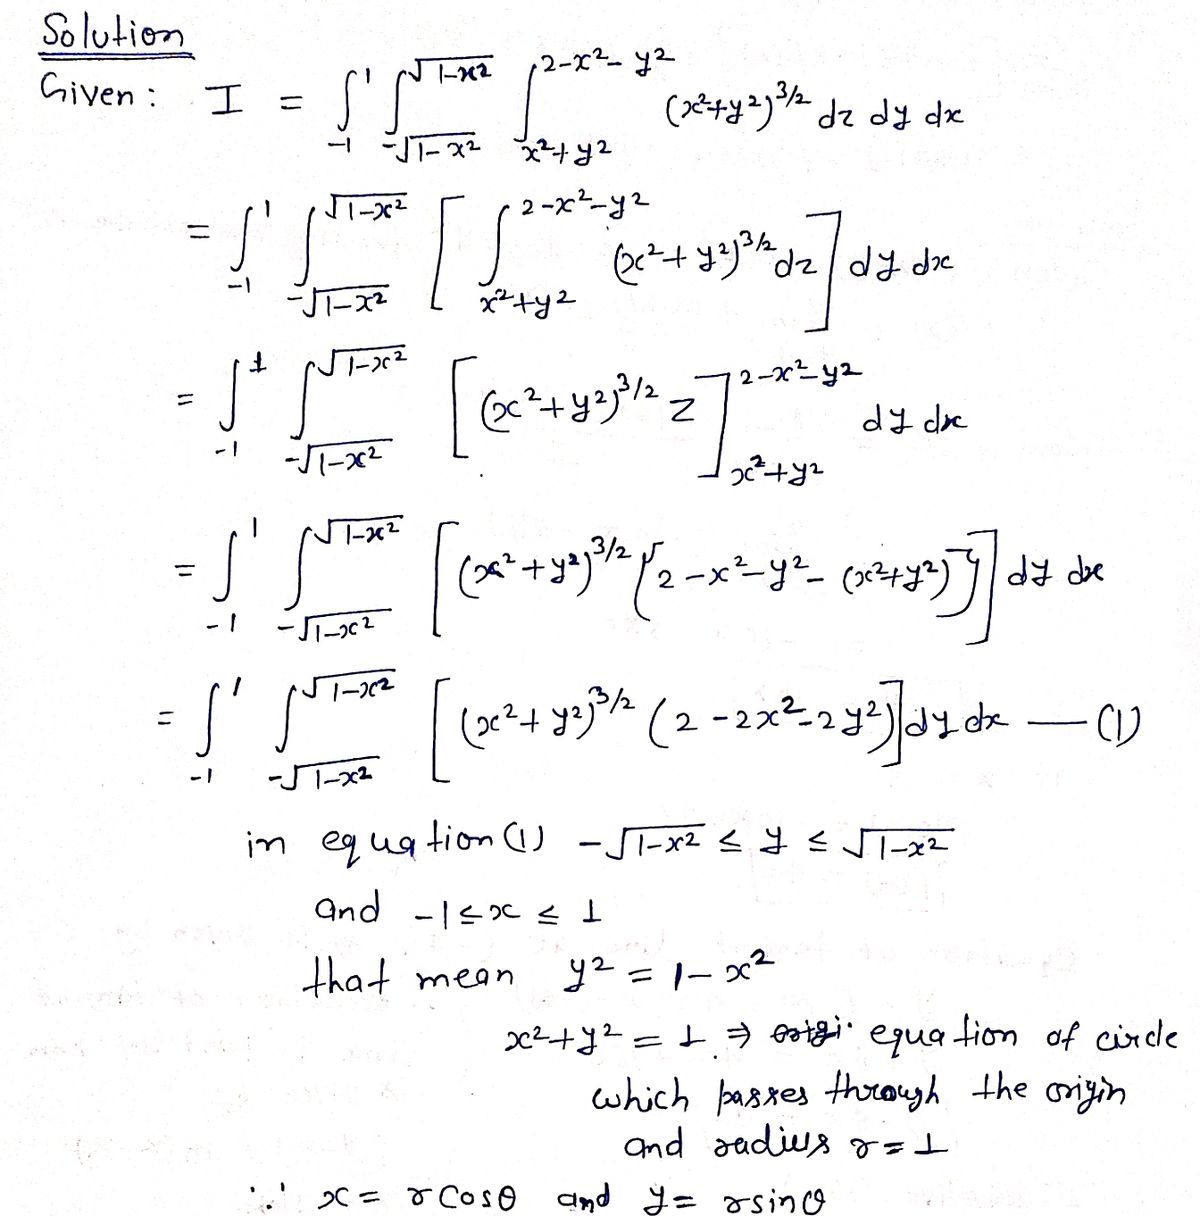 Solution
Given : I = ∫_{-1}^{1} ∫_{-√(1-x²)}^{√(1-x²)} ∫_{x²+y²}^{2-x²-y²} (x²+y²)^{3/2} dz dy dx
= ∫_{-1}^{1} ∫_{-√(1-x²)}^{√(1-x²)} [ ∫_{x²+y²}^{2-x²-y²} (x²+y²)^{3/2} dz ] dy dx
= ∫_{-1}^{1} ∫_{-√(1-x²)}^{√(1-x²)} [ (x²+y²)^{3/2} z ]_{x²+y²}^{2-x²-y²} dy dx
= ∫_{-1}^{1} ∫_{-√(1-x²)}^{√(1-x²)} [ (x²+y²)^{3/2} { 2-x²-y²-(x²+y²) } ] dy dx
= ∫_{-1}^{1} ∫_{-√(1-x²)}^{√(1-x²)} [ (x²+y²)^{3/2} (2-2x²-2y²) ] dy dx — (1)
in equation (1) -√(1-x²) ≤ y ≤ √(1-x²)
and -1 ≤ x ≤ 1
that mean y² = 1-x²
x²+y² = 1 ⇒ equation of circle
which passes through the origin
and radius r = 1
∵ x = r cosθ and y = r sinθ